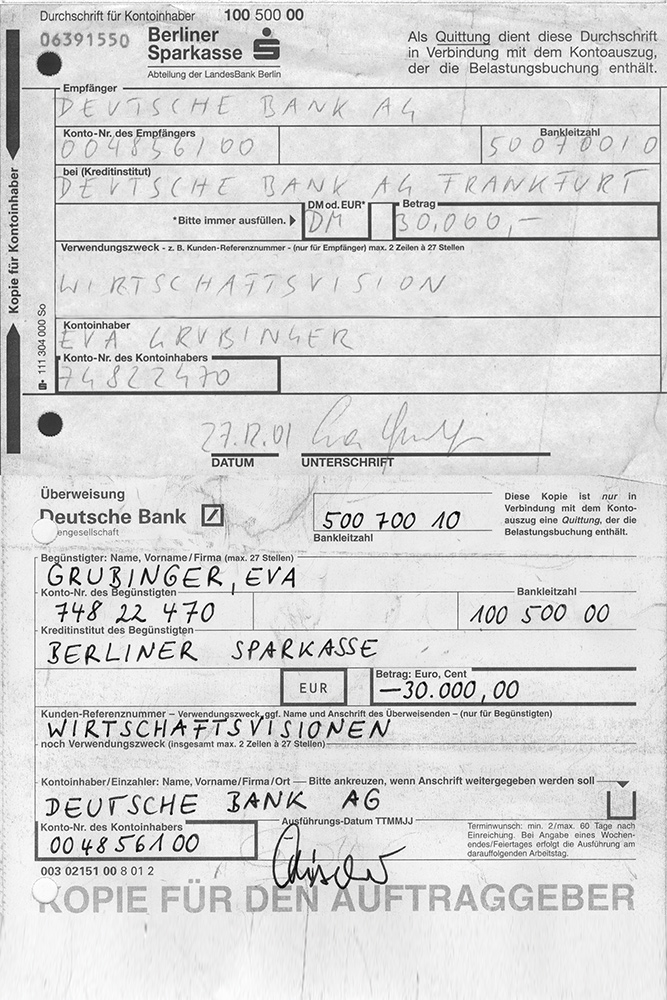 Durchschrift für Kontoinhaber 100 500 00
06391550 Berliner Sparkasse
Abteilung der LandesBank Berlin
Als Quittung dient diese Durchschrift
in Verbindung mit dem Kontoauszug,
der die Belastungsbuchung enthält.
Kopie für Kontoinhaber
111 304 000 So
Empfänger
DEUTSCHE BANK AG
Konto-Nr. des Empfängers Bankleitzahl
004856100 50070010
bei (Kreditinstitut)
DEUTSCHE BANK AG FRANKFURT
*Bitte immer ausfüllen. DM od. EUR* Betrag
DM 30.000,—
Verwendungszweck - z. B. Kunden-Referenznummer - (nur für Empfänger) max. 2 Zeilen à 27 Stellen
WIRTSCHAFTSVISION
Kontoinhaber
EVA GRUBINGER
Konto-Nr. des Kontoinhabers
74822470
27.12.01
DATUM UNTERSCHRIFT
Überweisung
Deutsche Bank
engesellschaft
500 700 10
Bankleitzahl
Diese Kopie ist nur in
Verbindung mit dem Konto-
auszug eine Quittung, der die
Belastungsbuchung enthält.
Begünstigter: Name, Vorname/Firma (max. 27 Stellen)
GRUBINGER, EVA
Konto-Nr. des Begünstigten Bankleitzahl
748 22 470 100 500 00
Kreditinstitut des Begünstigten
BERLINER SPARKASSE
EUR Betrag: Euro, Cent
—30.000,00
Kunden-Referenznummer – Verwendungszweck, ggf. Name und Anschrift des Überweisenden – (nur für Begünstigten)
WIRTSCHAFTSVISIONEN
noch Verwendungszweck (insgesamt max. 2 Zeilen à 27 Stellen)
Kontoinhaber/Einzahler: Name, Vorname/Firma/Ort — Bitte ankreuzen, wenn Anschrift weitergegeben werden soll
DEUTSCHE BANK AG
Konto-Nr. des Kontoinhabers Ausführungs-Datum TTMMJJ
00 48 561 00
Terminwunsch: min. 2/max. 60 Tage nach
Einreichung. Bei Angabe eines Wochen-
endes/Feiertages erfolgt die Ausführung am
darauffolgenden Arbeitstag.
003 02151 00 8 01 2
KOPIE FÜR DEN AUFTRAGGEBER